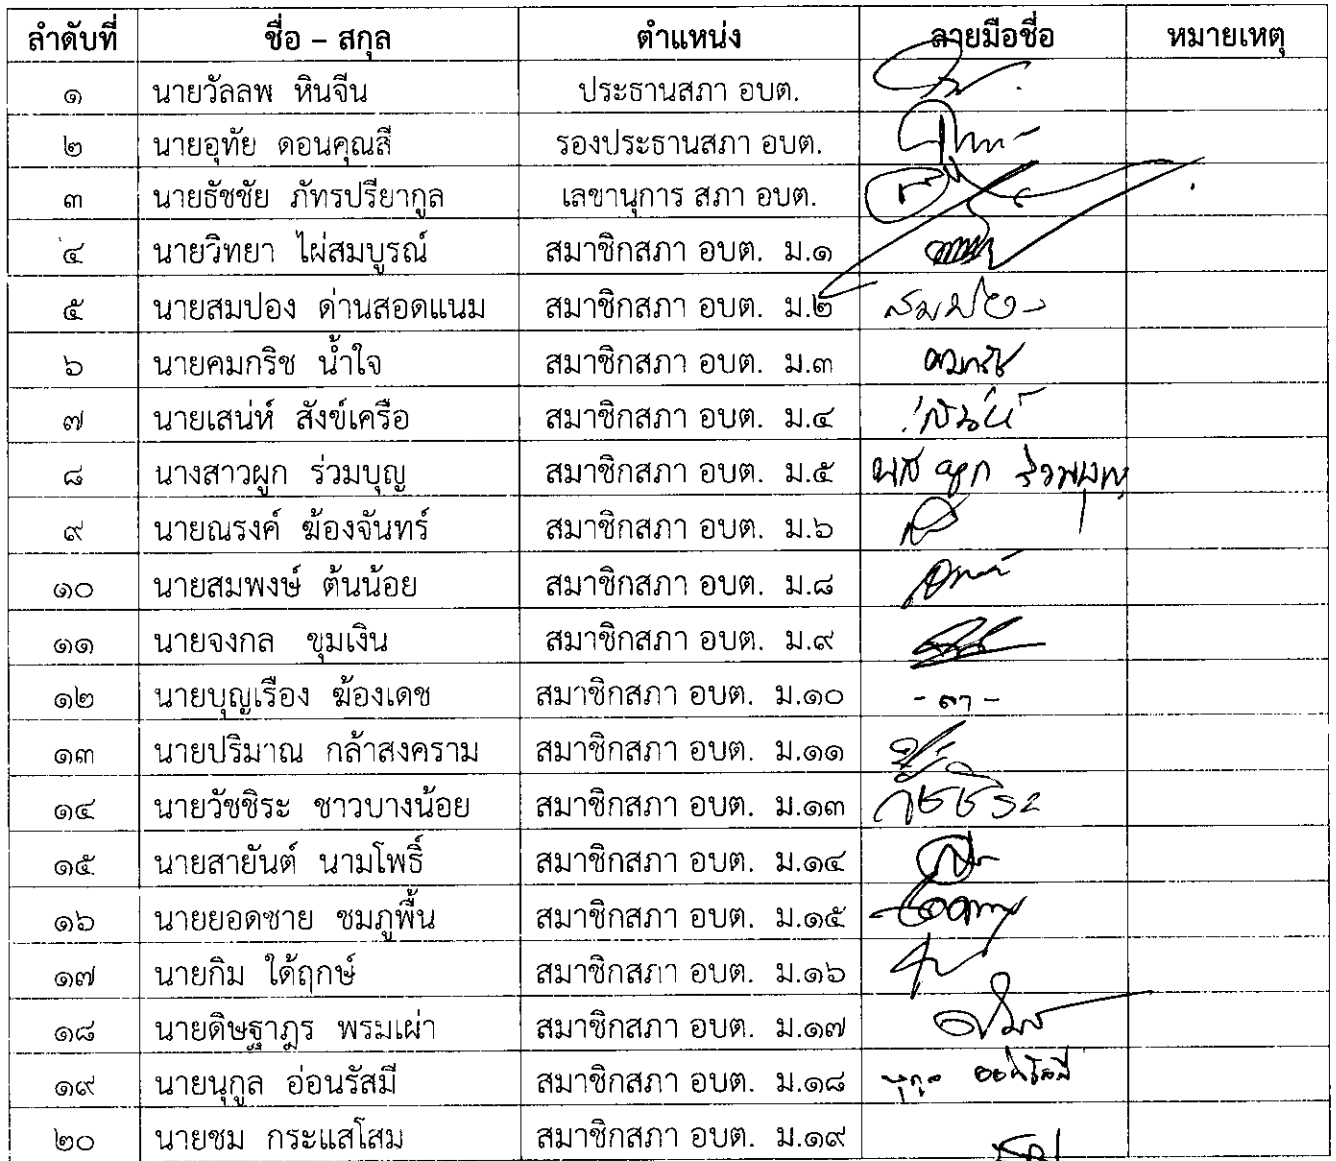 ลำดับที่ ชื่อ – สกุล ตำแหน่ง ลายมือชื่อ หมายเหตุ
๑ นายวัลลพ หินจีน ประธานสภา อบต.
๒ นายอุทัย ดอนคุณสี รองประธานสภา อบต.
๓ นายธัชชัย ภัทรปรียากูล เลขานุการ สภา อบต.
๔ นายวิทยา ไผ่สมบูรณ์ สมาชิกสภา อบต. ม.๑
๕ นายสมปอง ด่านสอดแนม สมาชิกสภา อบต. ม.๒ สมปอง
๖ นายคมกริช น้ำใจ สมาชิกสภา อบต. ม.๓ คมกริช
๗ นายเสน่ห์ สังข์เครือ สมาชิกสภา อบต. ม.๔ เสน่ห์
๘ นางสาวผูก ร่วมบุญ สมาชิกสภา อบต. ม.๕ นส ผูก ร่วมบุญ
๙ นายณรงค์ ฆ้องจันทร์ สมาชิกสภา อบต. ม.๖
๑๐ นายสมพงษ์ ต้นน้อย สมาชิกสภา อบต. ม.๘
๑๑ นายจงกล ขุมเงิน สมาชิกสภา อบต. ม.๙
๑๒ นายบุญเรือง ฆ้องเดช สมาชิกสภา อบต. ม.๑๐ - ลา -
๑๓ นายปริมาณ กล้าสงคราม สมาชิกสภา อบต. ม.๑๑
๑๔ นายวัชชิระ ชาวบางน้อย สมาชิกสภา อบต. ม.๑๓ วัชชิระ
๑๕ นายสายันต์ นามโพธิ์ สมาชิกสภา อบต. ม.๑๔
๑๖ นายยอดชาย ชมภูพื้น สมาชิกสภา อบต. ม.๑๕
๑๗ นายกิม ใด้ฤกษ์ สมาชิกสภา อบต. ม.๑๖
๑๘ นายดิษฐาภูร พรมเผ่า สมาชิกสภา อบต. ม.๑๗
๑๙ นายนุกูล อ่อนรัสมี สมาชิกสภา อบต. ม.๑๘ นุกูล อ่อนรัสมี
๒๐ นายชม กระแสโสม สมาชิกสภา อบต. ม.๑๙